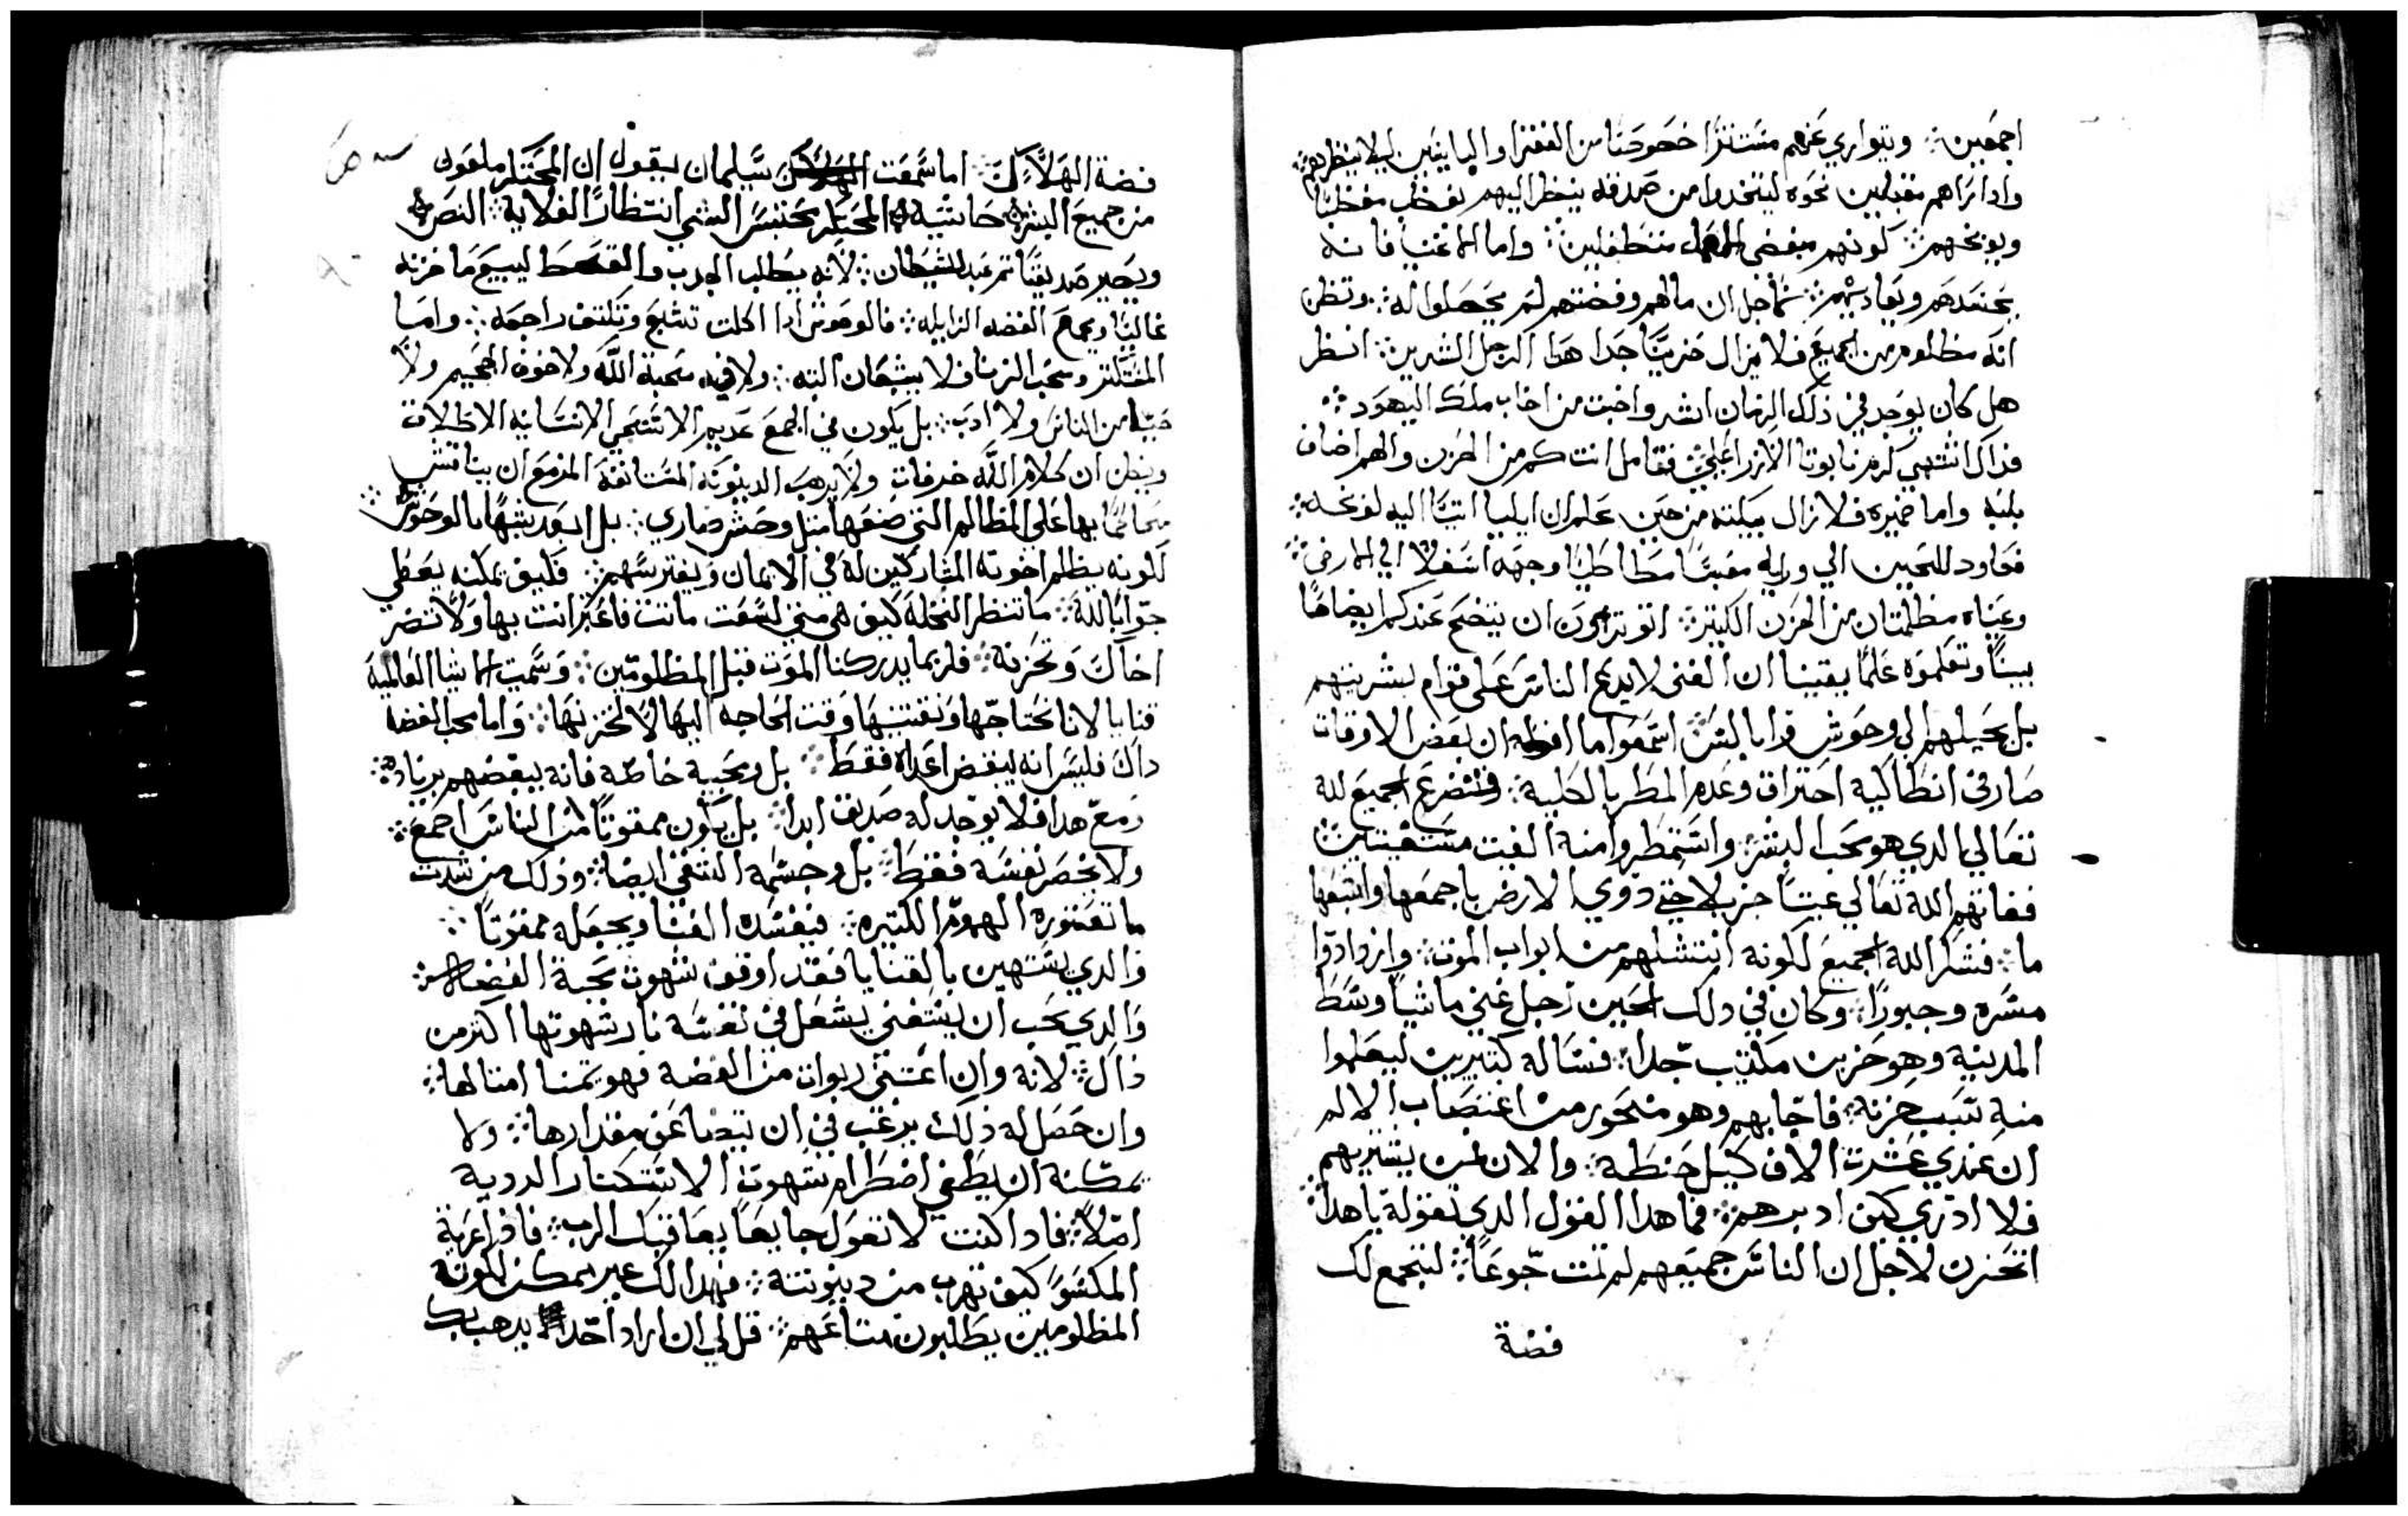 اجمعين ويتواري عنهم مستترا خصوصا من الفقرا والبايسين ليلا ينظرهم
وادا راهم مقبلين نحوه ليتخدوا من صدقه ينظر اليهم بغضب
ويوبخهم كونهم مبغضي متطفلين واما الاغنيا فانه
يحسدهم ويعاديهم لاجل ان مالهم وفضتهم لم يحصلوا له وتظن
انه مظلوم من الجميع فلا يزال حزينا جدا هدا الرجل الشرير انظر
هل كان يوجد في ذلك الزمان اشر واخبت من اخاب ملك اليهود
فداك اشتهى كرم نابوتا الازراعلي فتامل انت كم من الحزن والهم اضاف
بلبه واما ضميره فلا زال يبكته من حين علم ان ايليا اتيا اليه لوبخه
فعاود للحين الي ورايه معبسا مطاطيا وجهه اسفلا الي الارض
وعيناه مظلمتان من الحزن الكتير اتوترون ان يتضح عندكم ايضاحا
بينا وتعلموه علما يقينا ان الغنى لا يدع الناس على قوام بشريتهم
بل يحيلهم الي وحوش فرابا لشر اسمعوا ما افوله ان بعض الاوقات
صار في انطاكيه احتراق وعدم المطر بالكلية فتضرع الجميع لله
تعالي الدي هو محب البشر واستمطروا منه الغيت مستغيتين
فغاتهم الله تعالي غيتا جزيلا حتي روي الارض باجمعها واشبعها
ما فشكر الله الجميع لكونه انتشلهم من ابواب الموت وازدادوا
مسره وحبورا وكان في دلك الحين رجل غني ماشيا وسط
المدينة وهو حزين مكتيب جدا فساله كتيرين ليعلموا
منه سبب حزنه فاجابهم وهو منحور من اغتصاب الالم
ان عندي عشرت الاف كيل حنطة والان لمن يشتريهم
فلا ادري كيف ادبرهم فما هدا القول الدي تقوله يا هدا
اتحزن لاجل ان الناس جميعهم لم تمت جوعا لتجمع لك
فضة
فضة الهلاك اما سمعت سليمان يقول ان المحتكر ملعون
من جميع البشر حاشيه المحتكر يحتبس الشي انتظارا لغلايه النصر
ويصير صديقا تم عبد للشيطان لانه يطلب الجدب والقحط ليبيع ما خزنه
غاليا ويجمع الفضه الزايله فالوحوش ادا اكلت تشبع وتلتف راجعه واما
المفتلتر ومحب الزنا فلا يشبعان البته ولا فيه محبة الله ولا خوف الجحيم ولا
حيا من الناس ولا ادب بل يكون في الجمع عديم الانسانيه الاطلاق
ويظن ان كلام الله خرفات ولا يرهب الدينونه المستانفة المزمع ان يناقش
محاكما بها على المظالم التي صنعها متل وحش ضاري بل ابعد شبها بالوحوش
لكونه يظلم اخوته المشاركين له في الايمان ويفترسهم فكيف يمكنه يعطي
جوابا لله ما تنظر النحله كيف هي متي لسعت ماتت فاعتبر انت بها ولا تضر
اخاك وتحزنه فلربما يدركنا الموت قبل المظلومين وسميت الاشيا العالميه
قنايا لانا نحتاجها ونقتنيها وقت الحاجه اليها لا لنخزنها واما محب الفضه
داك فليس انه يبغض اعداه فقط بل ومحبيه خاصه فانه يبغضهم بزياده
ومع هدا فلا يوجد له صديق ابدا بل يكون ممقوتا من الناس اجمع
ولا يخصر نفسه فقط بل وجسمه الشقي ايضا وذلك من شدت
ما تعتوره الهموم الكتيره فيفسده الغنا ويجعله ممقوتا
والدي يستهين بالقنايا فقد اوقف شهوت محبة الفضه
والدي يحب ان يستغني يشعل في نفسه نار شهوتها اكتر من
ذاك لانه وان اغتني ربوات من الفضه فهو يتمنا امتالها
وان حصل له ذلك يرغب في ان يتضاعف مقدارها ولا
يمكنه ان يطفي اضطرام شهوت الاستكتار الردية
اصلا فادا كنت لا تعول جايعا يعاقبك الرب فاذ اعرية
المكسو كيف تهرب من دينونته فهدا لك غير ممكن لكونه
المظلومين يطلبون متاعهم قل لي ان اراد احدا يدهب بك